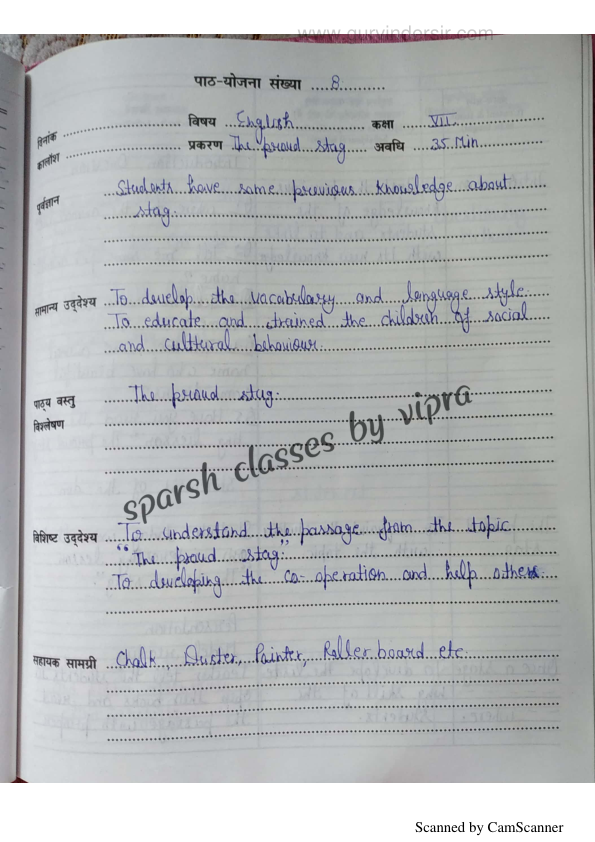 www.gurvindersir.com
पाठ-योजना संख्या ....8..........
दिनांक ........ विषय ...English........ कक्षा ....VII........
कालांश ........ प्रकरण The proud stag. अवधि ...35 Min........
पूर्वज्ञान ...Students have some previous knowledge about
stag.
सामान्य उद्देश्य ..To develop the vocabulary and language style
To educate and trained the children of social
and culttural behaviour.
पाठ्य वस्तु ....The proud stag.
विश्लेषण
sparsh classes by vipra
विशिष्ट उद्देश्य ..To understand the passage from the topic
"The proud stag."
To developing the co-operation and help others
सहायक सामग्री ..Chalk, Duster, Painter, Roller board etc.
Scanned by CamScanner